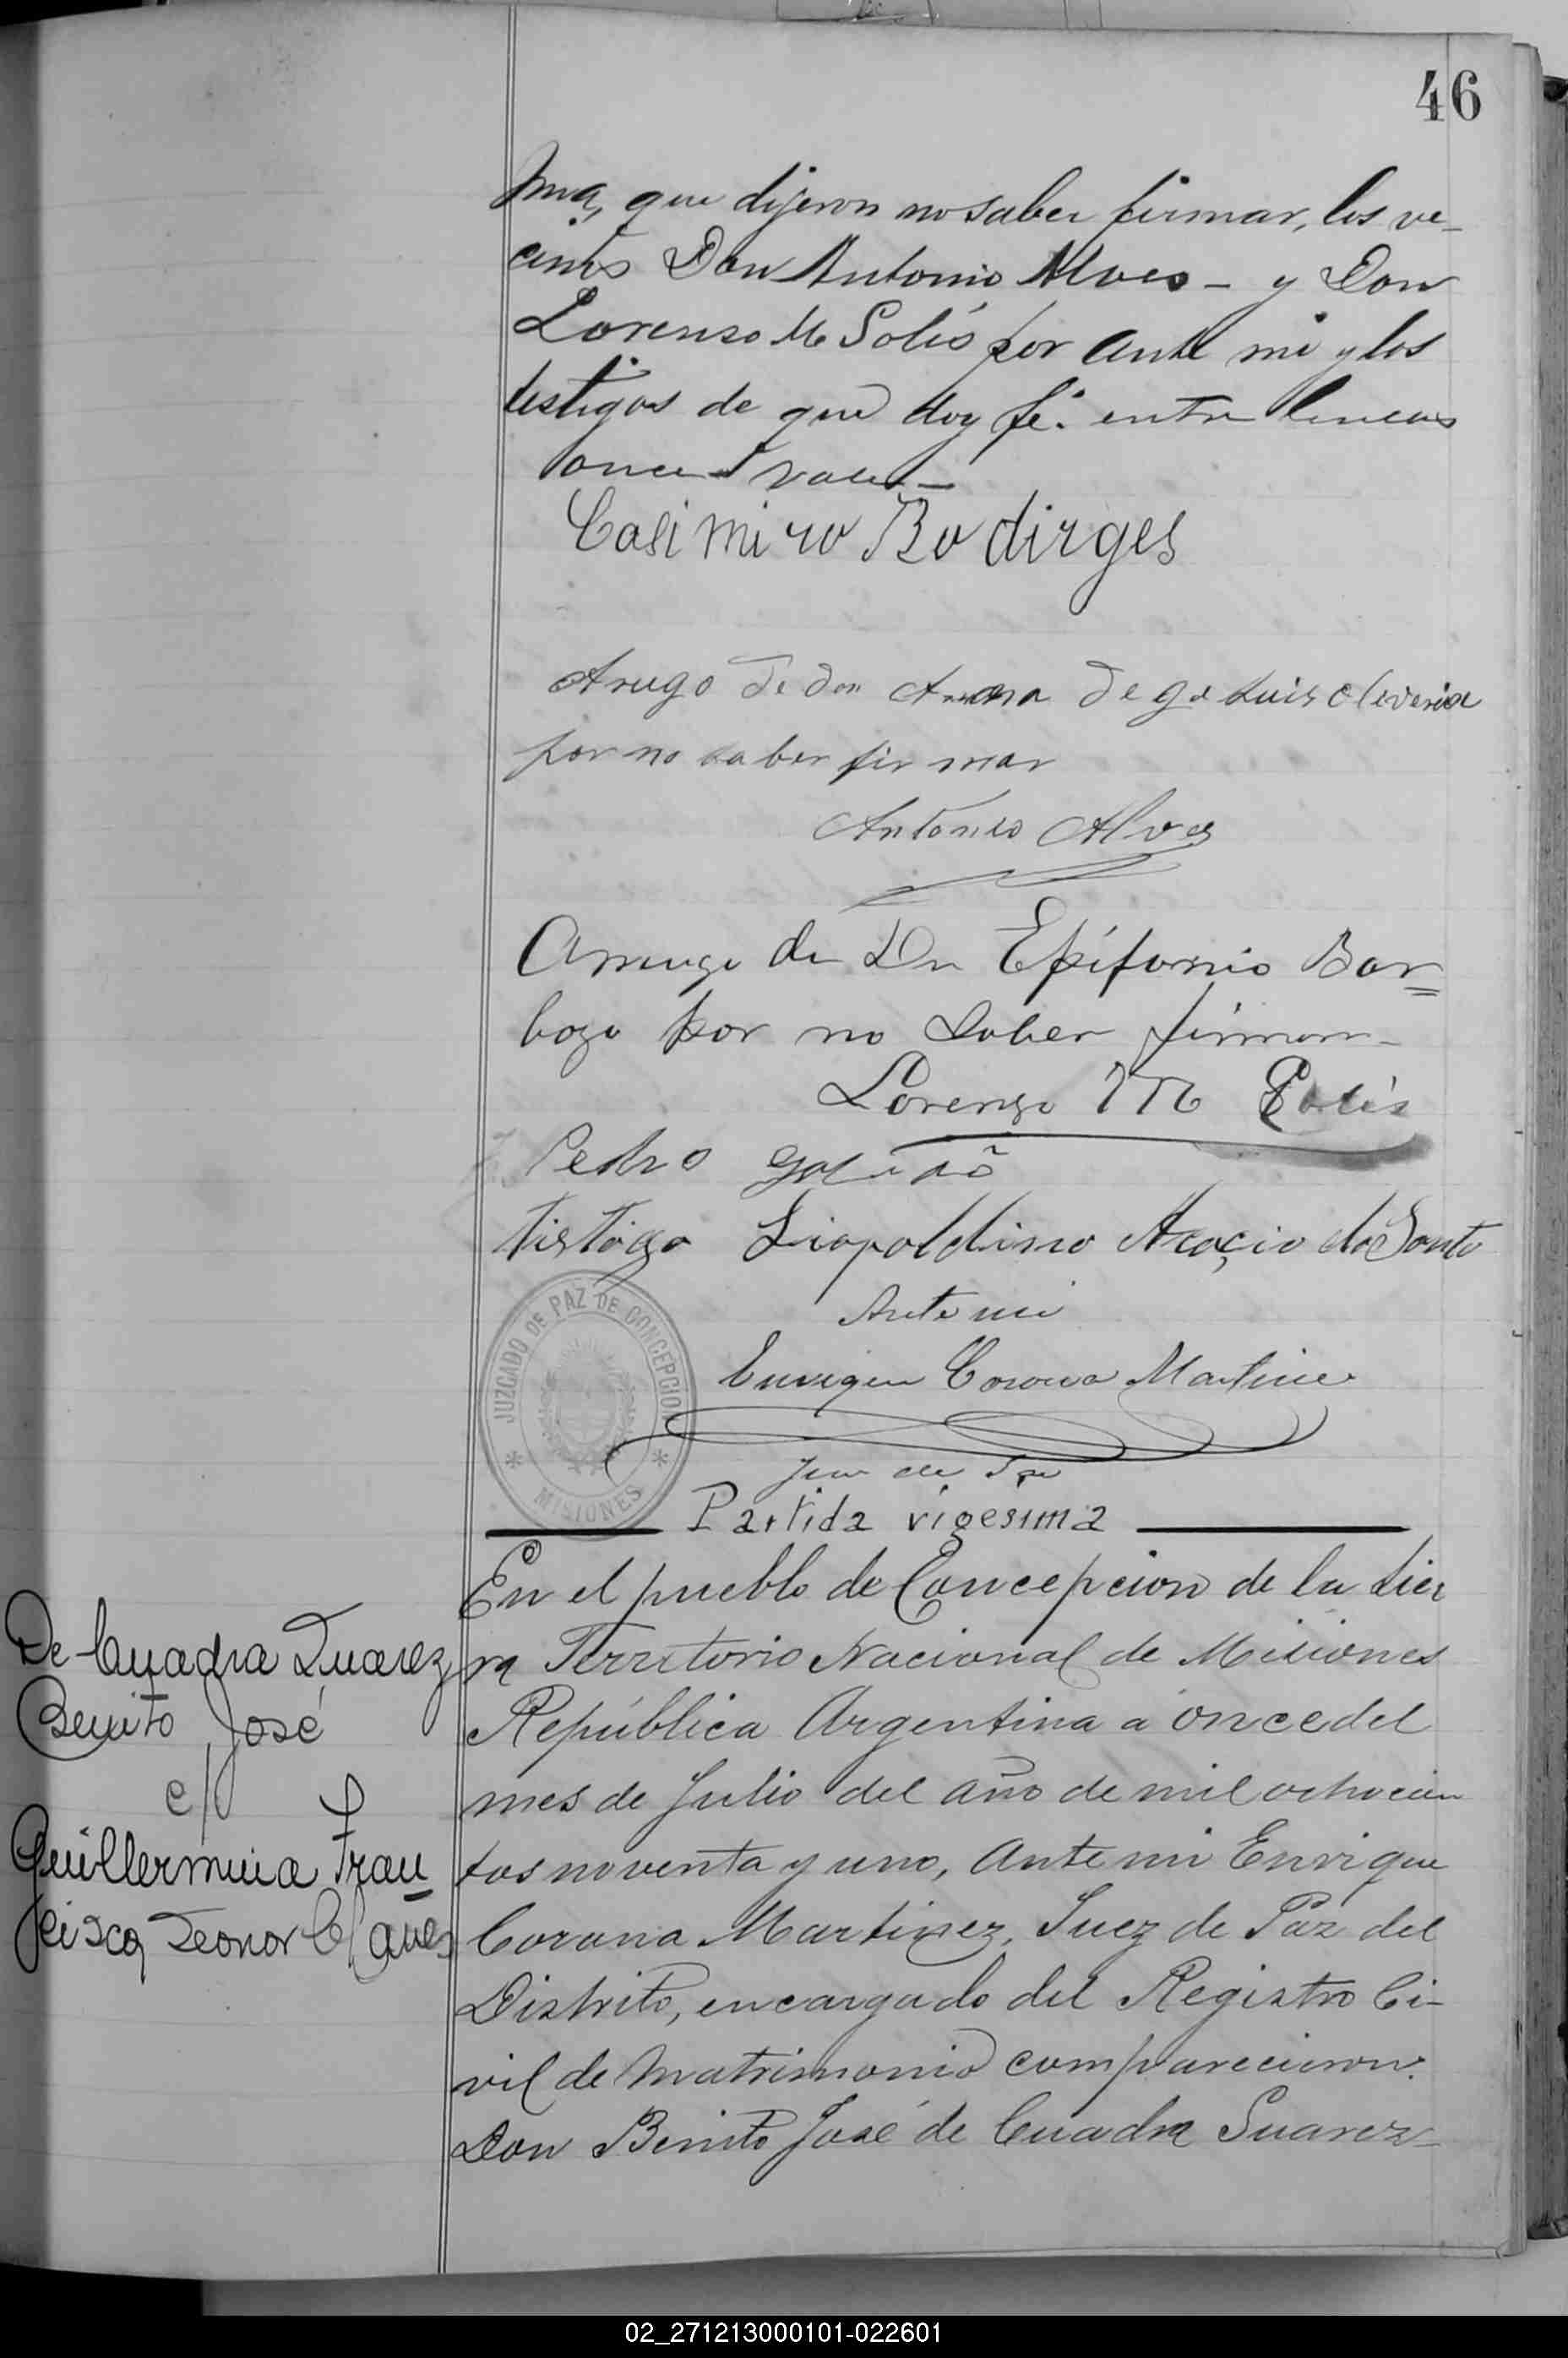 46
que dijeron no saber firmar, los ve-
cinos Don Antonio Alves - y Don
Lorenzo M Solís por ante mi y los
testigos de que doy fé. entre lineas
once vale -
Casimiro Bo dirges
Arugo de don de ga Luis
por no saber fir mar
Antonio Alves
Arruego de Dn Epifanio Bar=
bozo por no saber firmar -
Lorenzo M Solís
Pedro
Tistigo Liopoldino Acaçio do Santo
Ante mi
JUZGADO DE PAZ DE CONCEPCION
* MISIONES *
Enrique Corona Martinez
Juez de Paz
Partida vigesima
En el pueblo de Concepcion de la Sier
De Cuadra Suarez
Benito José
c/
Guillermina Fran
cisca Leonor
ra Territorio Nacional de Misiones
República Argentina a once del
mes de Julio del año de mil ochocien
tos noventa y uno, Ante mi Enrique
Corona Martinez, Juez de Paz del
Distrito, encargado del Registro Ci-
vil de Matrimonio comparecieron:
Don Benito José de Cuadra Suarez-
02_271213000101-022601